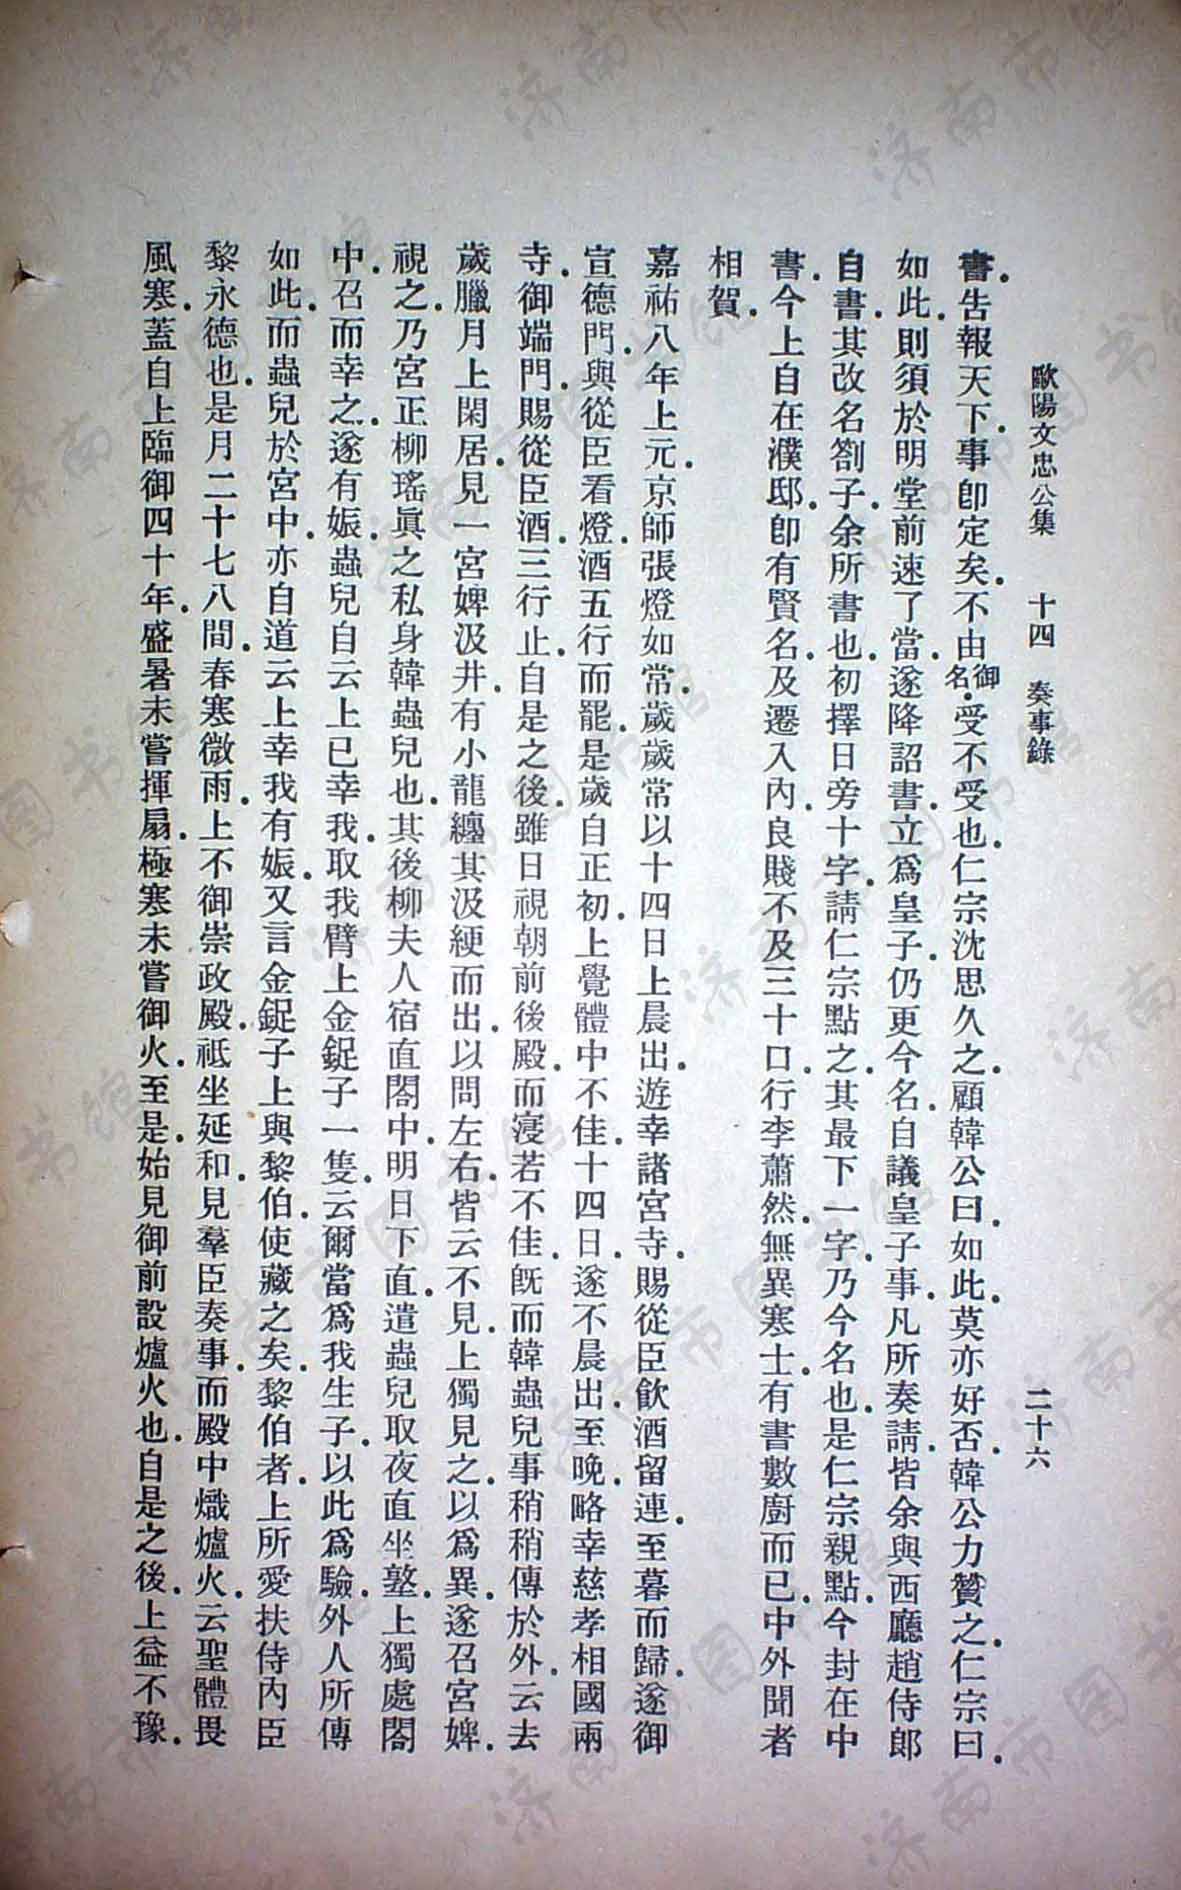 歐陽文忠公集　十四　奏事錄　二十六
書．告報天下．事卽定矣．不由御名．受不受也．仁宗沈思久之．顧韓公曰．如此．莫亦好否．韓公力贊之．仁宗曰．
如此．則須於明堂前速了當．遂降詔書．立爲皇子．仍更今名．自議皇子事．凡所奏請．皆余與西廳趙侍郎
自書．其改名劄子．余所書也．初擇日旁十字．請仁宗點之．其最下一字．乃今名也．是仁宗親點．今封在中
書．今上自在濮邸．卽有賢名．及遷入內．良賤不及三十口．行李蕭然．無異寒士．有書數廚而已．中外聞者
相賀．
嘉祐八年上元．京師張燈如常．歲歲常以十四日上晨出．遊幸諸宮寺．賜從臣飮酒留連．至暮而歸．遂御
宣德門．與從臣看燈．酒五行而罷．是歲自正初．上覺體中不佳．十四日．遂不晨出．至晚．略幸慈孝相國兩
寺．御端門．賜從臣酒．三行止．自是之後．雖日視朝前後殿．而寖若不佳．旣而韓蟲兒事稍稍傳於外．云去
歲臘月上閑居．見一宮婢汲井．有小龍纏其汲綆而出．以問左右．皆云不見．上獨見之．以爲異．遂召宮婢．
視之．乃宮正柳瑤眞之私身韓蟲兒也．其後柳夫人宿直閣中．明日下直．遣蟲兒取夜直坐墪．上獨處閣
中．召而幸之．遂有娠．蟲兒自云上已幸我．取我臂上金鋜子一隻．云爾當爲我生子．以此爲驗．外人所傳
如此．而蟲兒於宮中．亦自道云上幸我有娠．又言金鋜子上與黎伯．使藏之矣．黎伯者．上所愛扶侍內臣
黎永德也．是月二十七八間．春寒微雨．上不御崇政殿．祗坐延和．見羣臣奏事．而殿中熾爐火．云聖體畏
風寒．蓋自上臨御四十年．盛暑未嘗揮扇．極寒未嘗御火．至是．始見御前設爐火也．自是之後．上益不豫．